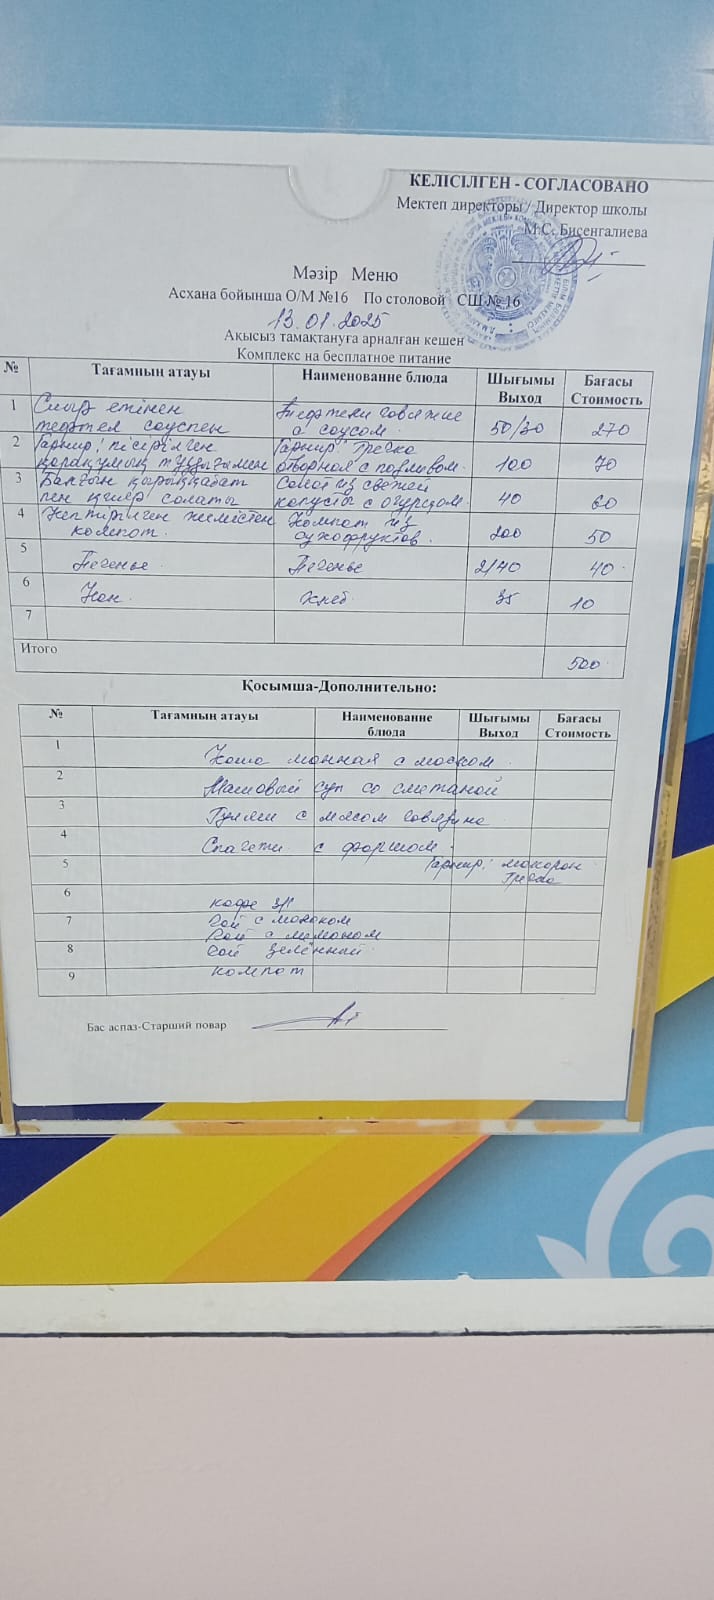 КЕЛІСІЛГЕН - СОГЛАСОВАНО
Мектеп директоры / Директор школы
М.С. Бисенгалиева
Мәзір Меню
Асхана бойынша О/М №16 По столовой СШ № 16
13.01.2025
Ақысыз тамақтануға арналған кешен
Комплекс на бесплатное питание
№ Тағамның атауы Наименование блюда Шығымы Выход Бағасы Стоимость
1 Сиыр етінен тефтел соуспен Тефтели говяжие с соусом. 50/30 270
2 Гарнир: пісірілген қарақұмық тұздығымен Гарнир: Гречка отворная с подливом. 100 70
3 Балғын қырыққабат пен қияр салаты Салат из свежей капусты с огурцом. 40 60
4 Кептірілген жемістен компот. Компот из сухофруктов. 200 50
5 Печенье Печенье 2/40 40
6 Нан. хлеб 35 10
7
Итого 500
Қосымша-Дополнительно:
№ Тағамның атауы Наименование блюда Шығымы Выход Бағасы Стоимость
1 Каша манная с маслом
2 Машовый суп со сметаной
3 Гуляш с мясом говядина
4 Спагети с фаршом.
5 Гарнир: макарон Гречка
6 кофе 3/1
7 Чай с молоком
Чай с лимоном
8 Чай зелённый
9 компот
Бас аспаз-Старший повар